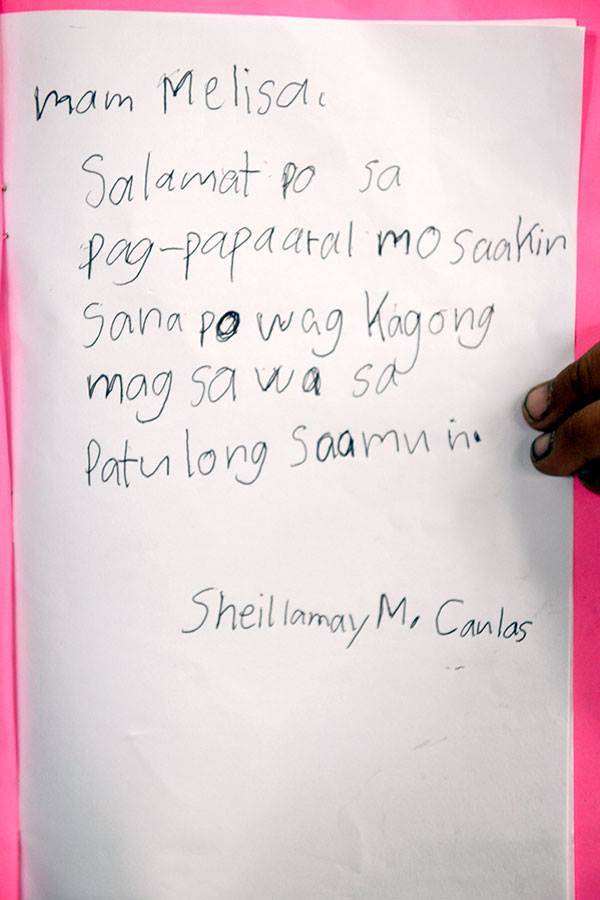 mam Melisa.
Salamat po sa
pag-papaaral mo saakin
Sana po wag Kagong
mag sa wa sa
Patulong saamun.
Sheillamay M. Canlas